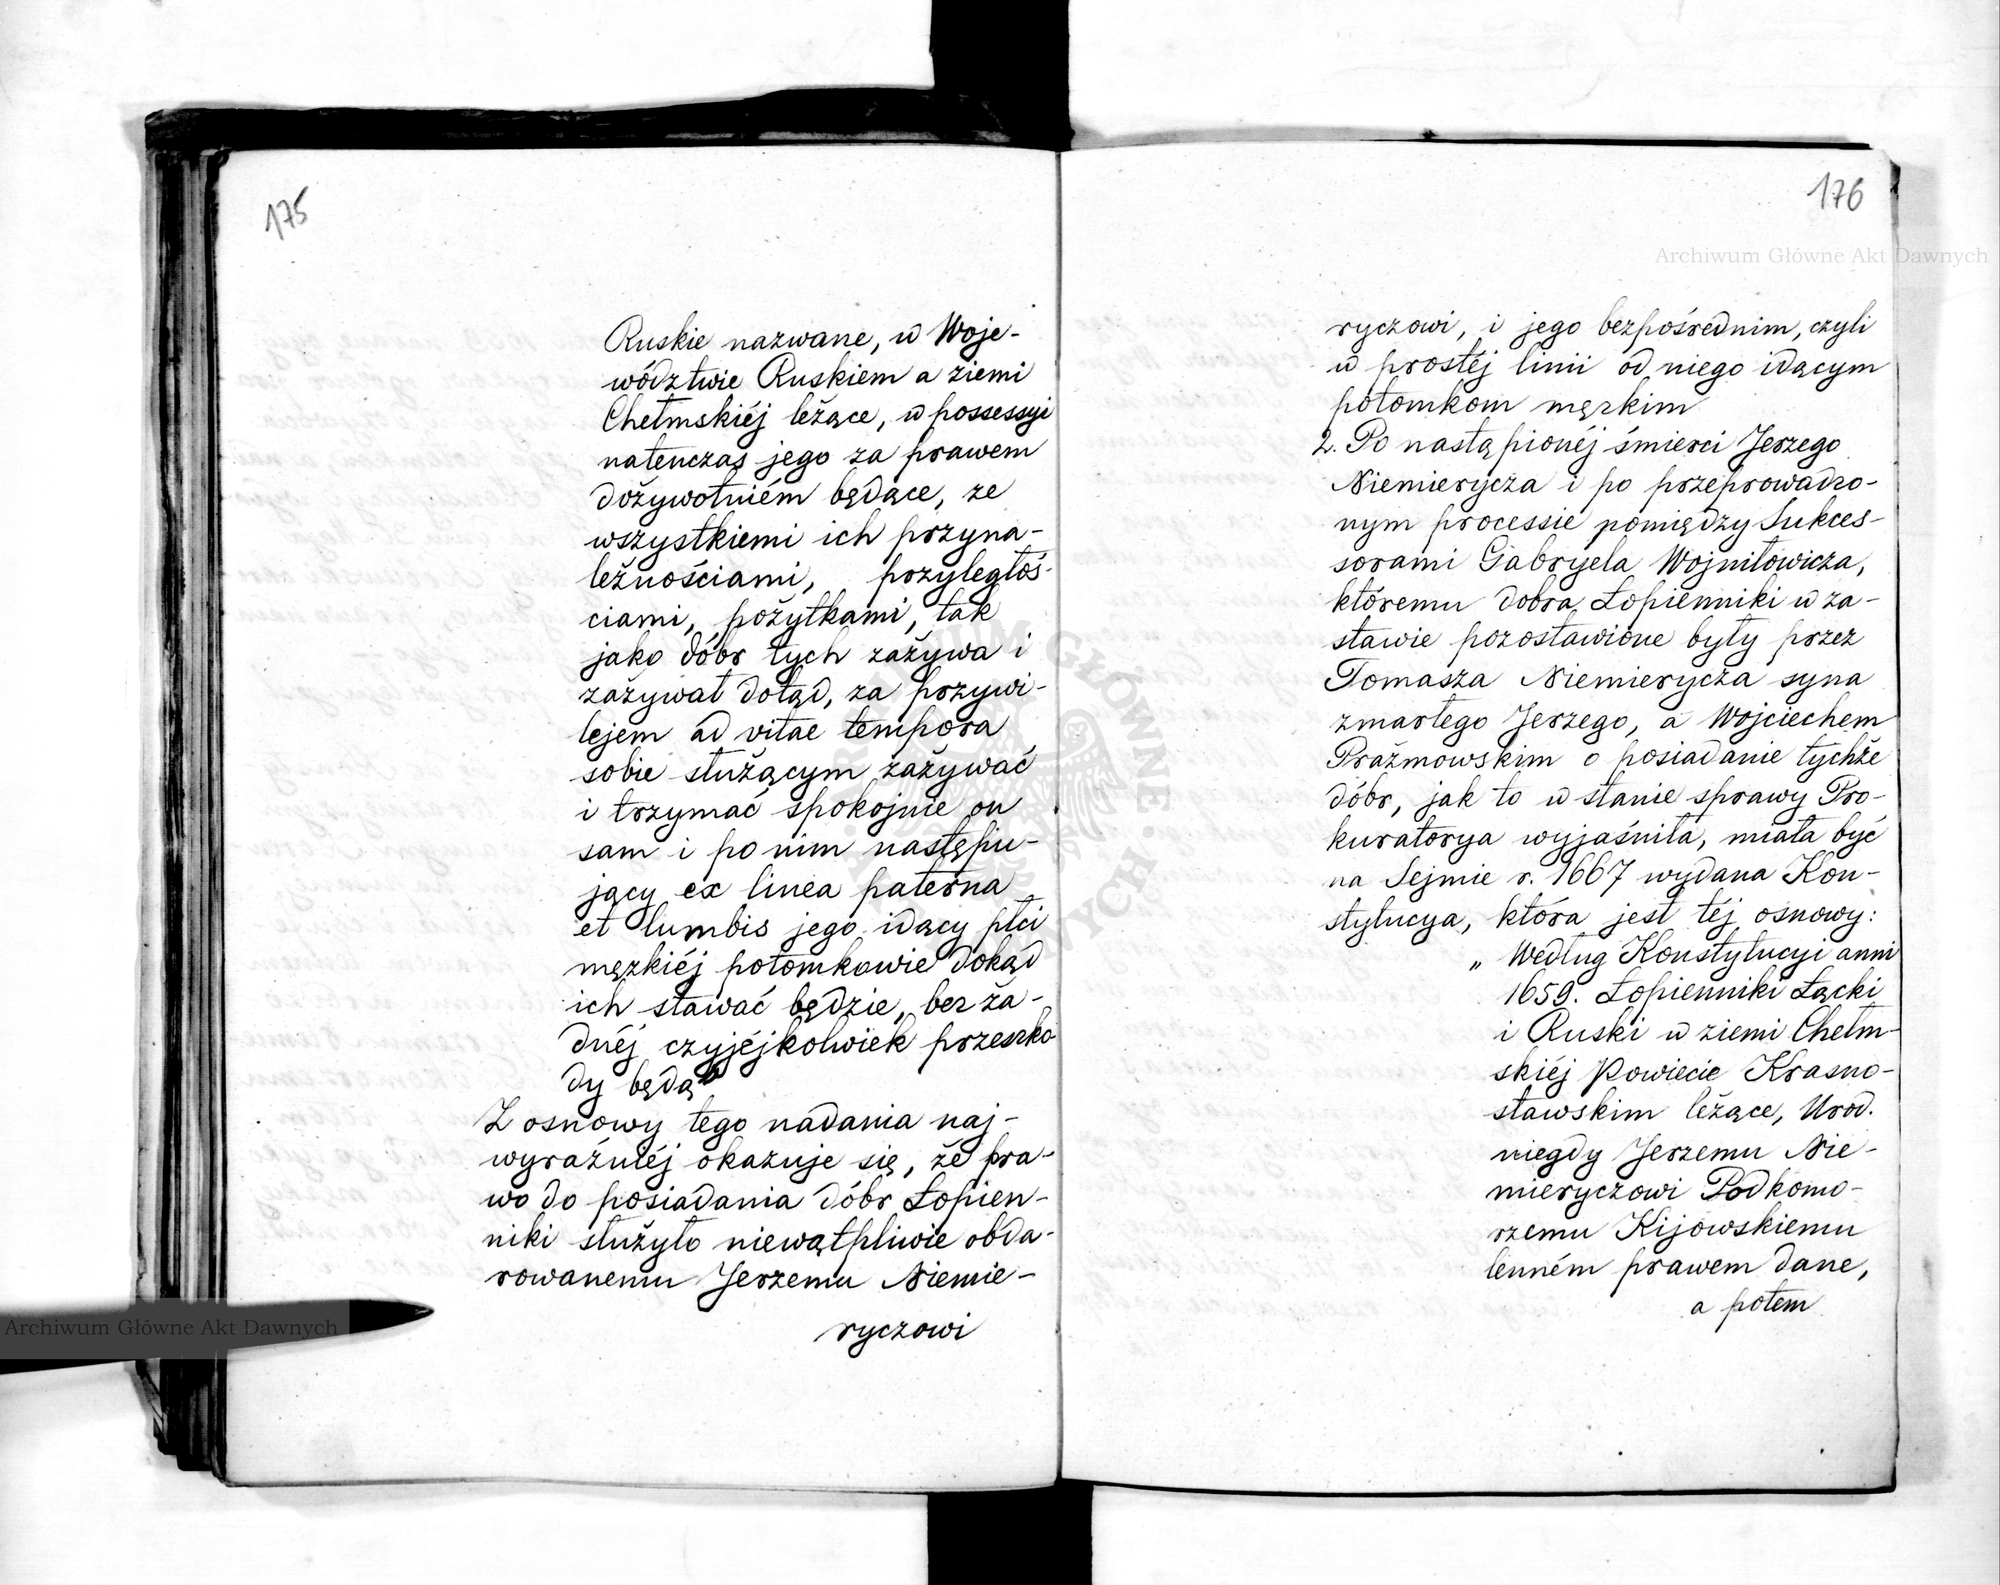 175
Ruskie nazwane, w Woje-
wództwie Ruskiem a ziemi
Chełmskiéj leżące, w possessyi
natenczas jego za prawem
dożywotniém będące, ze
wszystkiemi ich przyna-
leżnościami, przyległoś-
ciami, pożytkami, tak
jako dóbr tych zażywa i
zażywał dotąd, za przywi-
lejem ad vitae tempora
sobie służącym zażywać
i trzymać spokojnie on
sam i po nim następu-
jący ex linea paterna
et lumbis jego idący płci
męzkiéj potomkowie dokąd
ich stawać będzie, bez ża-
dnéj czyjéjkolwiek przeszko
dy będą"
Z osnowy tego nadania naj-
wyraźniéj okazuje się, że pra-
wo do posiadania dóbr Łopien-
niki służyło niewątpliwie obda-
rowanemu Jerzemu Niemie-
ryczowi
176
Archiwum Główne Akt Dawnych
ryczowi, i jego bezpośrednim, czyli
w prostéj linii od niego idącym
potomkom męzkim
2. Po nastąpionéj śmierci Jerzego
Niemierycza i po przeprowadzo-
nym processie pomiędzy Sukces-
sorami Gabryela Wojniłowicza,
któremu dobra Łopienniki w za-
stawie pozostawione były przez
Tomasza Niemierycza syna
zmarłego Jerzego, a Wojciechem
Prażmowskim o posiadanie tychże
dóbr, jak to w stanie sprawy Pro-
kuratorya wyjaśniła, miała być
na Sejmie r. 1667 wydana Kon-
stytucya, która jest téj osnowy:
„ Według Konstytucyi anni
1659. Łopienniki Łącki
i Ruski w ziemi Chełm-
skiéj Powiecie Krasno-
stawskim leżące, Urod.
niegdy Jerzemu Nie-
mieryczowi Podkomo-
rzemu Kijowskiemu
lenném prawem dane,
a potem
Archiwum Główne Akt Dawnych